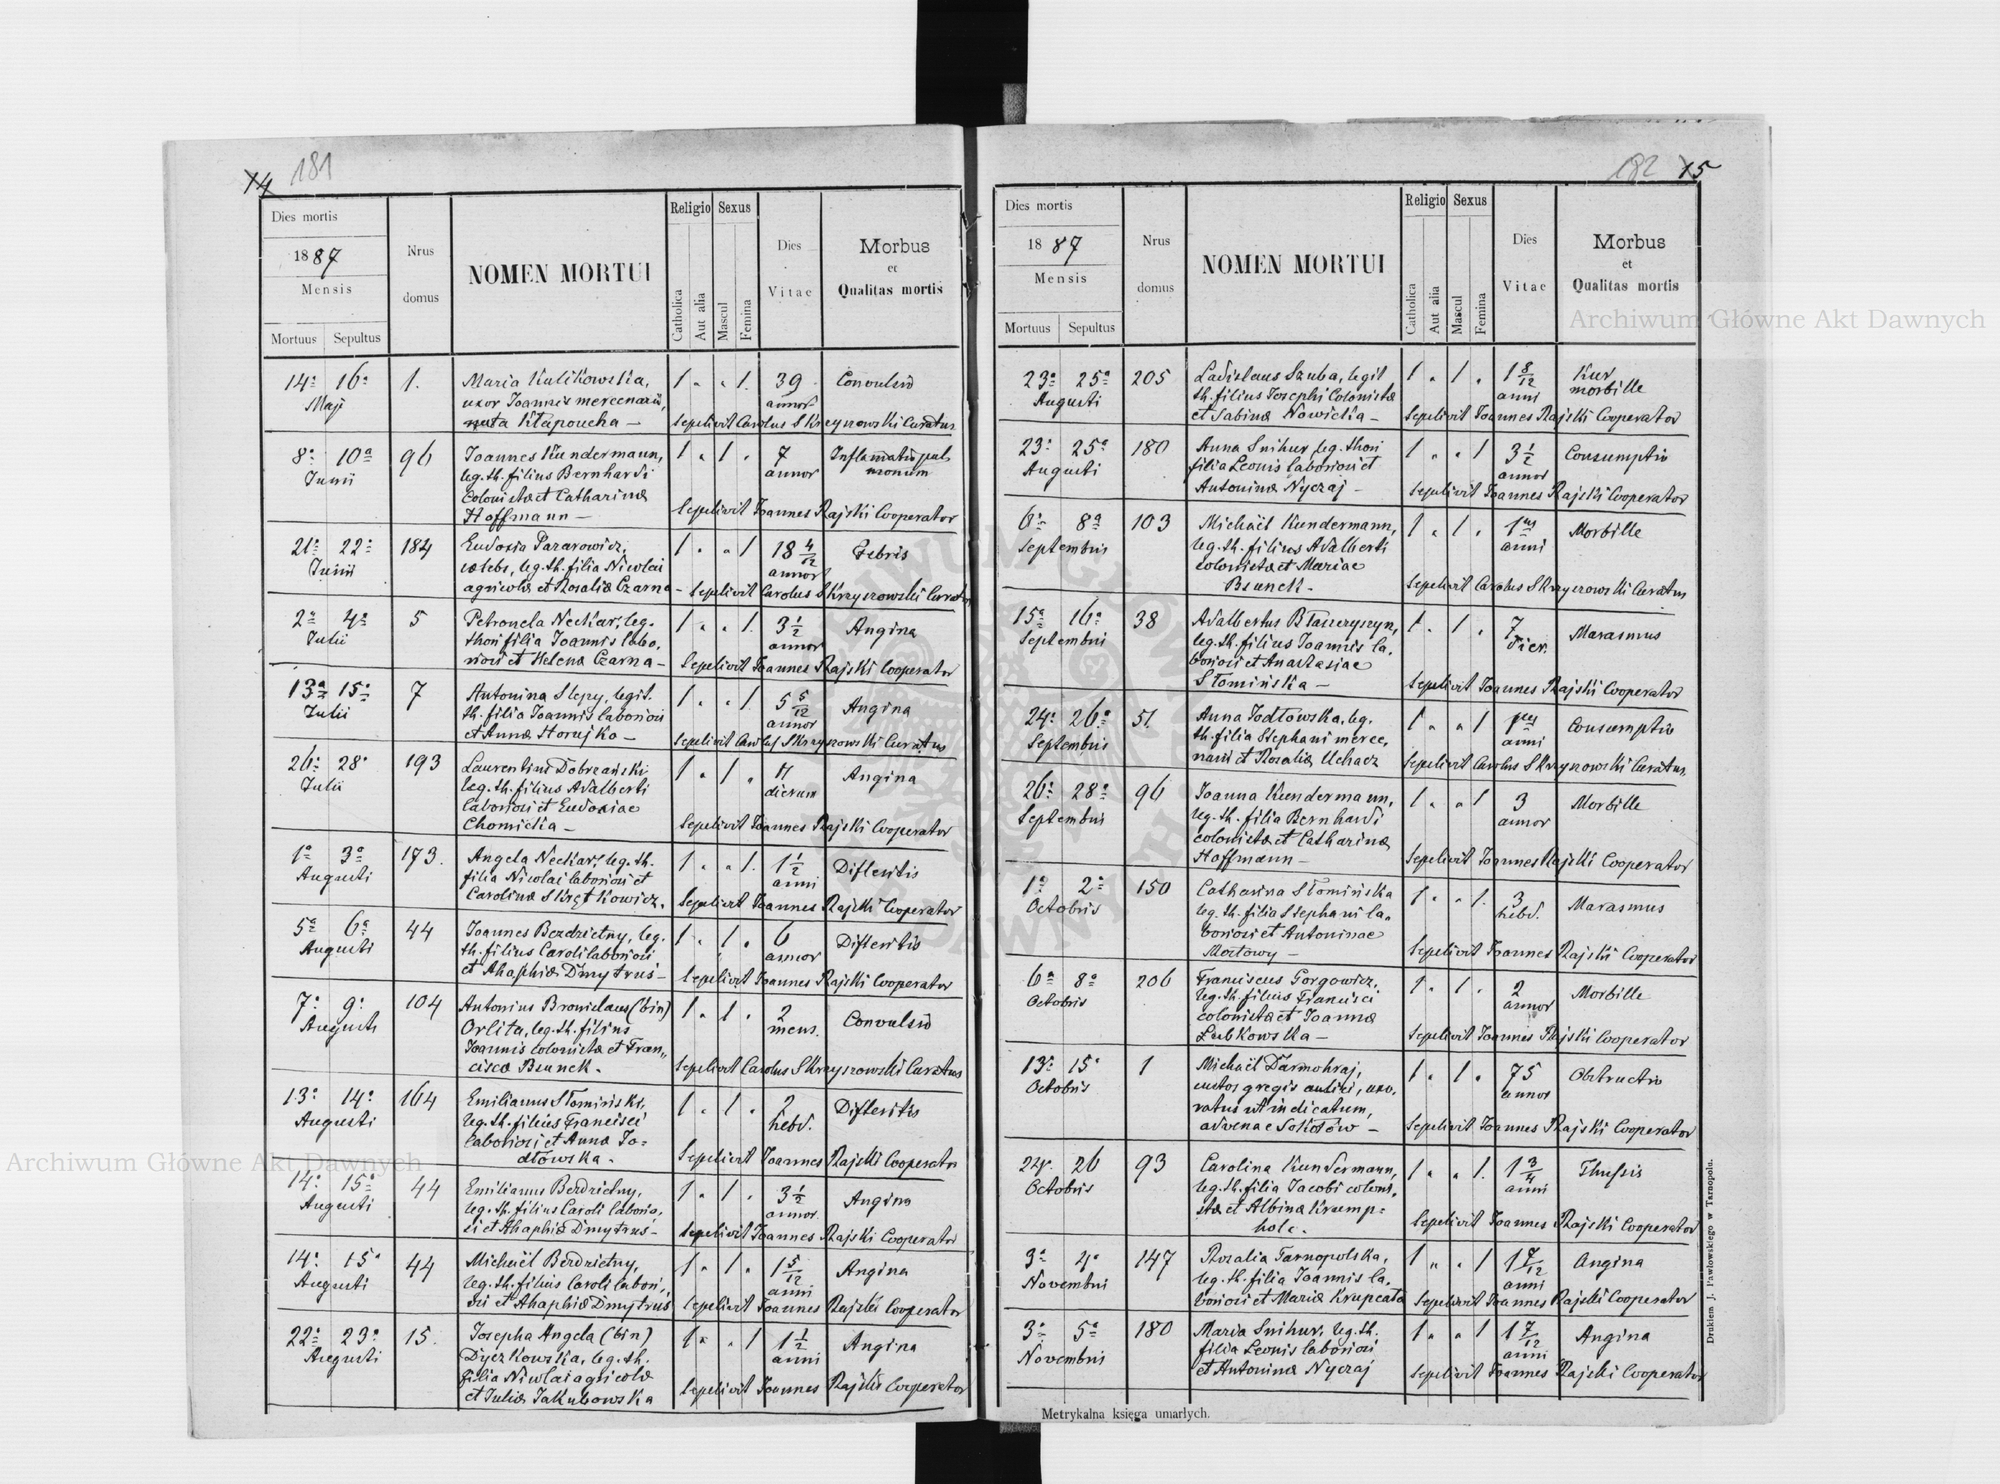 14 181
Dies mortis
1887
Mensis
Mortuus Sepultus
Nrus domus
NOMEN MORTUI
Religio Sexus
Catholica Aut alia Mascul Femina
Dies Vitae
Morbus
et
Qualitas mortis
14a 16a 1. Maria Kulikowska, 1 " " 1. 39 Convulsio
Maji uxor Joannis mercenarii, annor
nata Kłapoucha — Sepelivit Carolus Skrzyszowski Curatus
8a 10a 96 Joannes Kundermann, 1 " 1 " 7 Inflamatio pul-
Junii leg. th. filius Bernhardi annor monum
colonistæ et Catharinæ
Hoffmann — Sepelivit Joannes Rajski Cooperator
21a 22a 184 Eudoxia Pararowicz, 1 " " 1 18 4/12 Febris
Junii cælebs, leg. th. filia Nicolai annor
agricolæ et Rosaliæ Czarna — Sepelivit Carolus Skrzyszowski Curatus
2a 4a 5 Petronela Neckar, leg. 1 " " 1. 3 1/2 Angina
Julii thori filia Joannis labo- annor
riosi et Helenæ Czarna — Sepelivit Joannes Rajski Cooperator
13a 15a 7 Antonina Slepy, legit. 1 " " 1 5 5/12 Angina
Julii th. filia Joannis laboriosi annor
et Annæ Horejko — Sepelivit Carolus Skrzyszowski Curatus
26a 28a 193 Laurentius Dobrzański 1 " 1 " Angina
Julii leg. th. filius Adalberti dierum
laboriosi et Eudoxiae
Chomicka — Sepelivit Joannes Rajski Cooperator
1a 3a 173. Angela Neckar, leg. th. 1 " " 1. 1 1/2 Difteritis
Augusti filia Nicolai laboriosi et anni
Carolinæ Skrętkowicz. Sepelivit Joannes Rajski Cooperator
5a 6a 44 Joannes Bezdzietny, leg. 1 " 1 " 6 Difteritis
Augusti th. filius Caroli laboriosi annor
et Ahaphiæ Dmytruś — Sepelivit Joannes Rajski Cooperator
7a 9a 104 Antonius Bronislaus (bin) 1 " 1 " 2 Convulsio
Augusti Orlita, leg. th. filius mens.
Joannis colonistæ et Fran-
ciscæ Bsunek. Sepelivit Carolus Skrzyszowski Curatus
13a 14a 164 Emilianus Słomiński, 1 " 1 " 2 Difteritis
Augusti leg. th. filius Francisci hebd.
laboriosi et Annæ Jo-
dłowska. Sepelivit Joannes Rajski Cooperator
14a 15a 44 Emilianus Bezdzietny, 1 " 1 " 3 1/2 Angina
Augusti leg. th. filius Caroli laborio- annor
si et Ahaphiæ Dmytruś — Sepelivit Joannes Rajski Cooperator
14a 15a 44 Michaël Bezdzietny, 1 " 1 " 1 5/12 Angina
Augusti leg. th. filius Caroli labori- anni
osi et Ahaphiæ Dmytruś Sepelivit Joannes Rajski Cooperator
22a 23a 15. Josepha Angela (bin) 1 " " 1 1 1/2 Angina
Augusti Dyczkowska, leg. th. anni
filia Nicolai agricolæ
et Juliæ Jakubowska Sepelivit Joannes Rajski Cooperator
182 15
Dies mortis
1887
Mensis
Mortuus Sepultus
Nrus domus
NOMEN MORTUI
Religio Sexus
Catholica Aut alia Mascul Femina
Dies Vitae
Morbus
et
Qualitas mortis
23a 25a 205 Ladislaus Szuba, legit 1 " 1 " 1 8/12 Kur
Augusti th. filius Josephi Colonistæ anni morbille
et Sabinæ Nowicka — Sepelivit Joannes Rajski Cooperator
23a 25a 180 Anna Snihur leg. thori 1 " " 1 3 1/2 Consumptio
Augusti filia Leonis laboriosi et annor
Antoninæ Nyczaj — Sepelivit Joannes Rajski Cooperator
6a 8a 103 Michaël Kundermann, 1 " 1 " 1us Morbille
Septembris leg. th. filius Adalberti anni
colonistæ et Mariae
Bsunek. Sepelivit Carolus Skrzyszowski Curatus
15a 16a 38 Adalbertus Błaszczyszyn, 1 " 1 " 7 Marasmus
Septembris leg. th. filius Joannis la- dier.
boriosi et Anastasiae
Słomińska — Sepelivit Joannes Rajski Cooperator
24a 26a 51. Anna Jodłowska, leg. 1 " " 1 1us Consumptio
Septembris th. filia Stephani merce- anni
narii et Rosaliæ Uchacz Sepelivit Carolus Skrzyszowski Curatus.
26a 28a 96 Joanna Kundermann, 1 " " 1 3 Morbille
Septembris leg. th. filia Bernhardi annor
colonistæ et Catharinæ
Hoffmann — Sepelivit Joannes Rajski Cooperator
1a 2a 150 Catharina Słomińska 1 " " 1. 3 Marasmus
Octobris leg. th. filia Stephani la- hebd.
boriosi et Antoninae
Mostowy — Sepelivit Joannes Rajski Cooperator
6a 8a 206 Franciscus Gorgowicz, 1 " 1 " 2 Morbille
Octobris leg. th. filius Francisci annor
colonistæ et Joannæ
Łubkowska — Sepelivit Joannes Rajski Cooperator
13a 15a 1 Michaël Darmohraj, 1 " 1 " 75 Obstructio
Octobris custos gregis aulici, uxo- annor
ratus ut indicatum,
advena e Sokołów — Sepelivit Joannes Rajski Cooperator
24. 26 93 Carolina Kundermann, 1 " " 1. 1 3/4 Thussis
Octobris leg. th. filia Jacobi coloni- anni
stæ et Albinæ Krump=
holc. Sepelivit Joannes Rajski Cooperator
3a 4a 147 Rosalia Tarnopolska, 1 " " 1 1 7/12 Angina
Novembris leg. th. filia Joannis la- anni
boriosi et Mariæ Krupcata Sepelivit Joannes Rajski Cooperator
3a 5a 180 Maria Snihur, leg. th. 1 " " 1 1 7/12 Angina
Novembris filia Leonis laboriosi anni
et Antoninæ Nyczaj Sepelivit Joannes Rajski Cooperator
Metrykalna księga umarłych.
Drukiem J. Pawłowskiego w Tarnopolu.
Archiwum Główne Akt Dawnych
Archiwum Główne Akt Dawnych